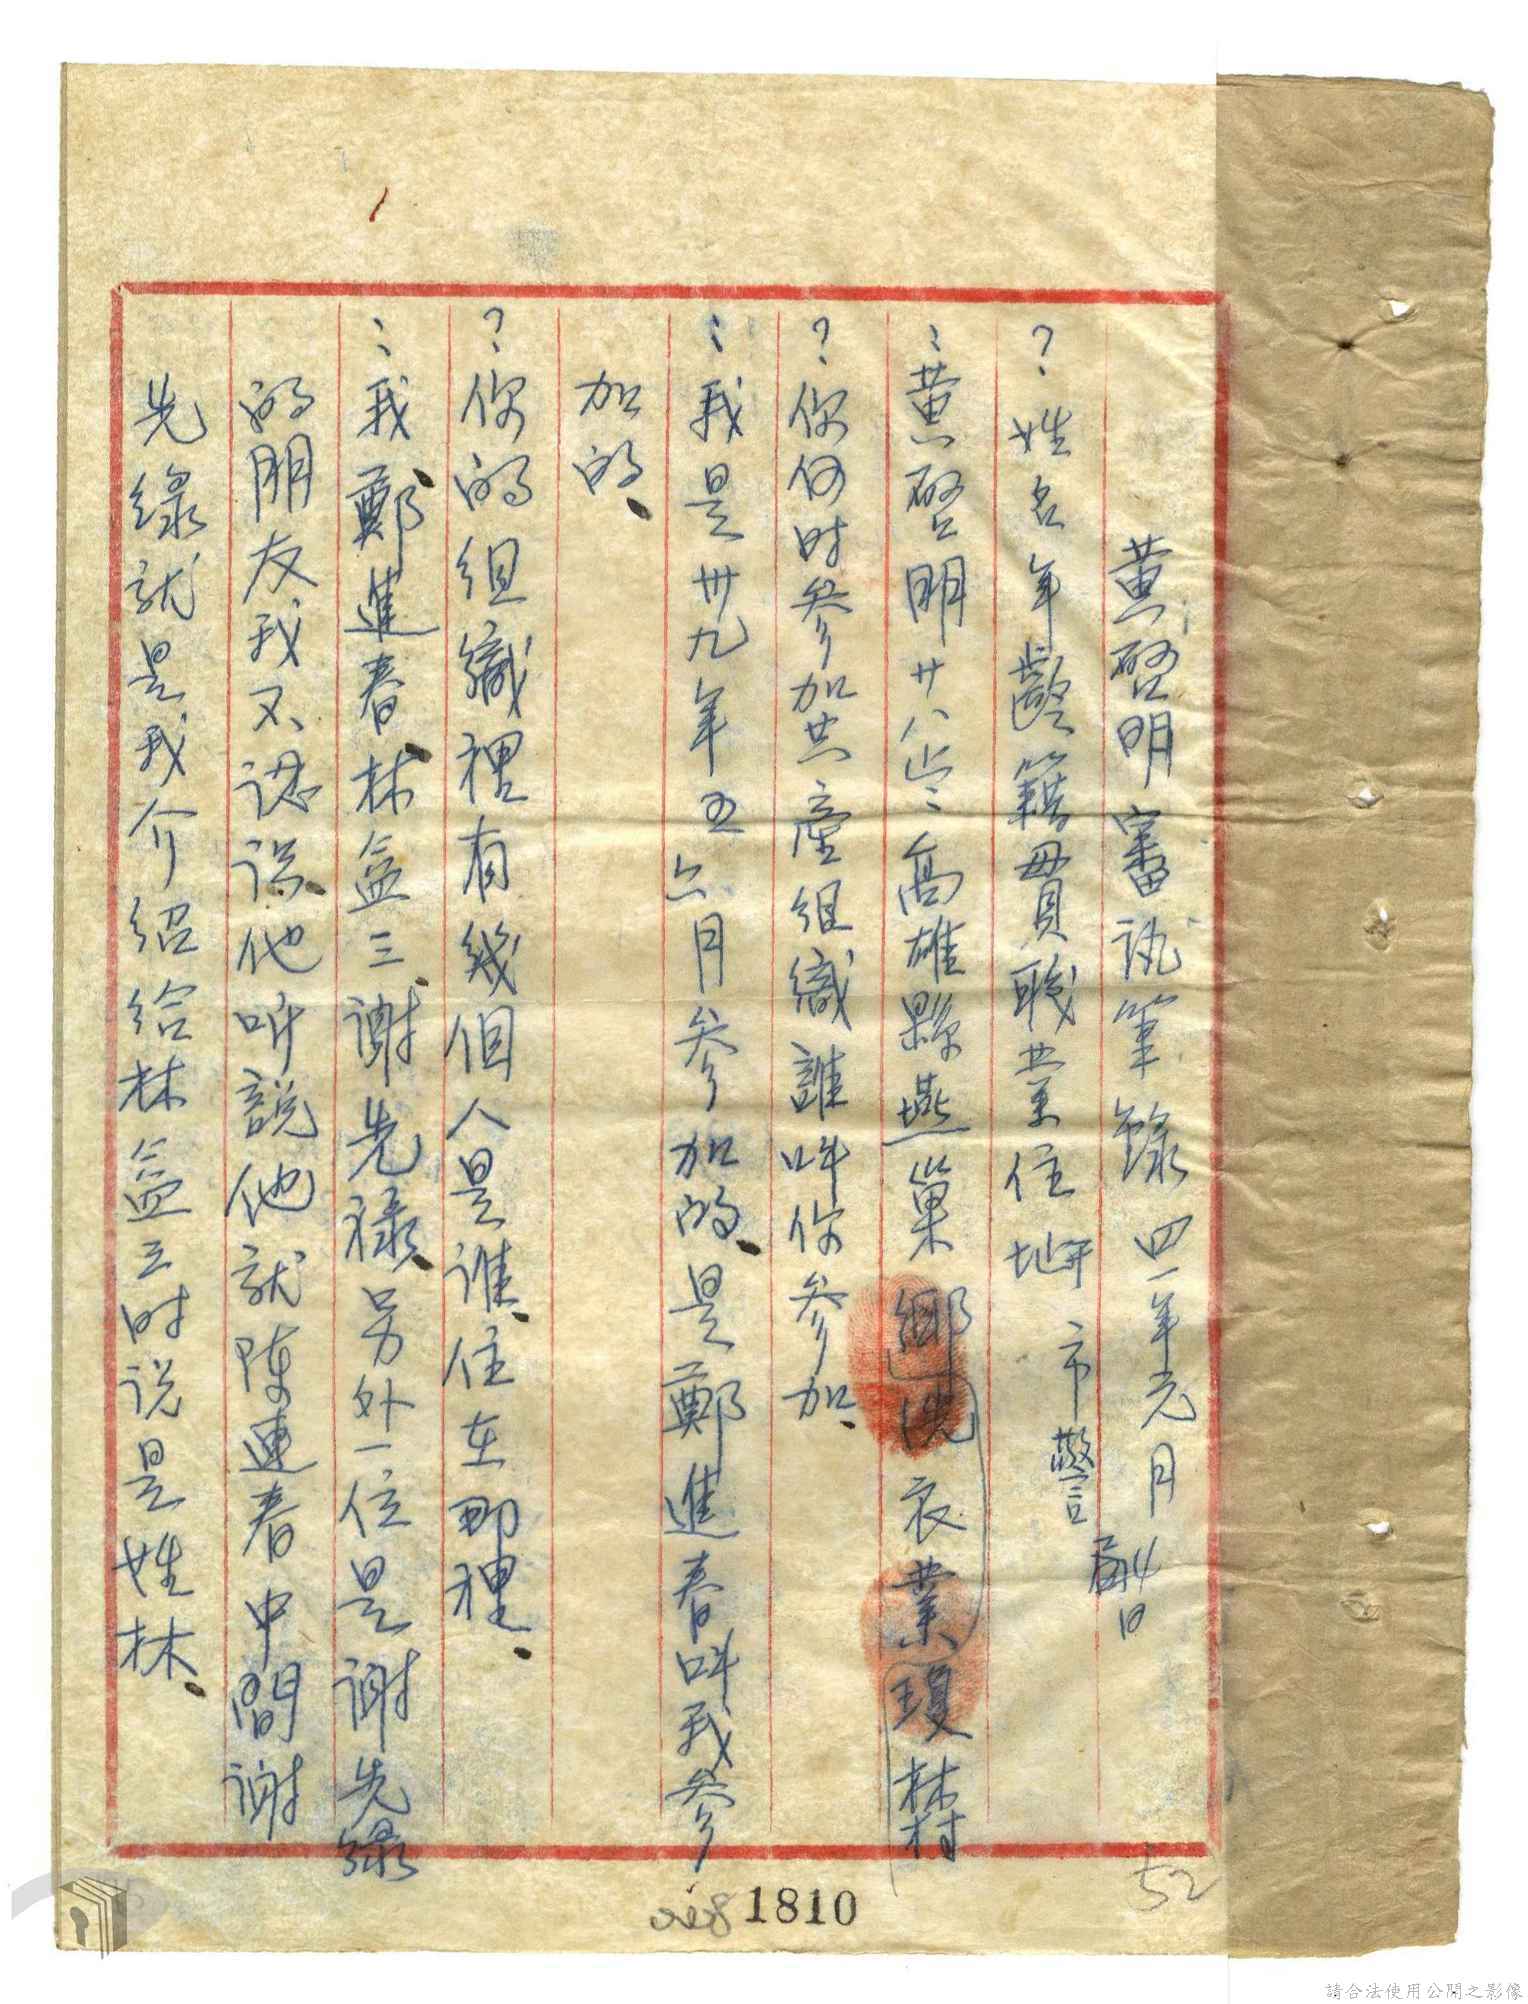 黄啓明審訊筆錄 四一年元月 日
市警
？姓名年齡籍貫職業住址
：黄啓明廿八岁高雄縣燕巢鄉 農業瓊林村
？你何时參加共產組織誰呌你參加、
：我是卅九年五六月參加的、是鄭進春呌我參
加的、
？你的組織裡有幾個人是谁、住在那裡、
：我、鄭進春、林益三、謝先禄、另外一位是谢先绿
的朋友我不认识、他听說他就陳連春中間谢
先绿就是我介紹给林益三时说是姓林、
1810
52
請合法使用公開之影像